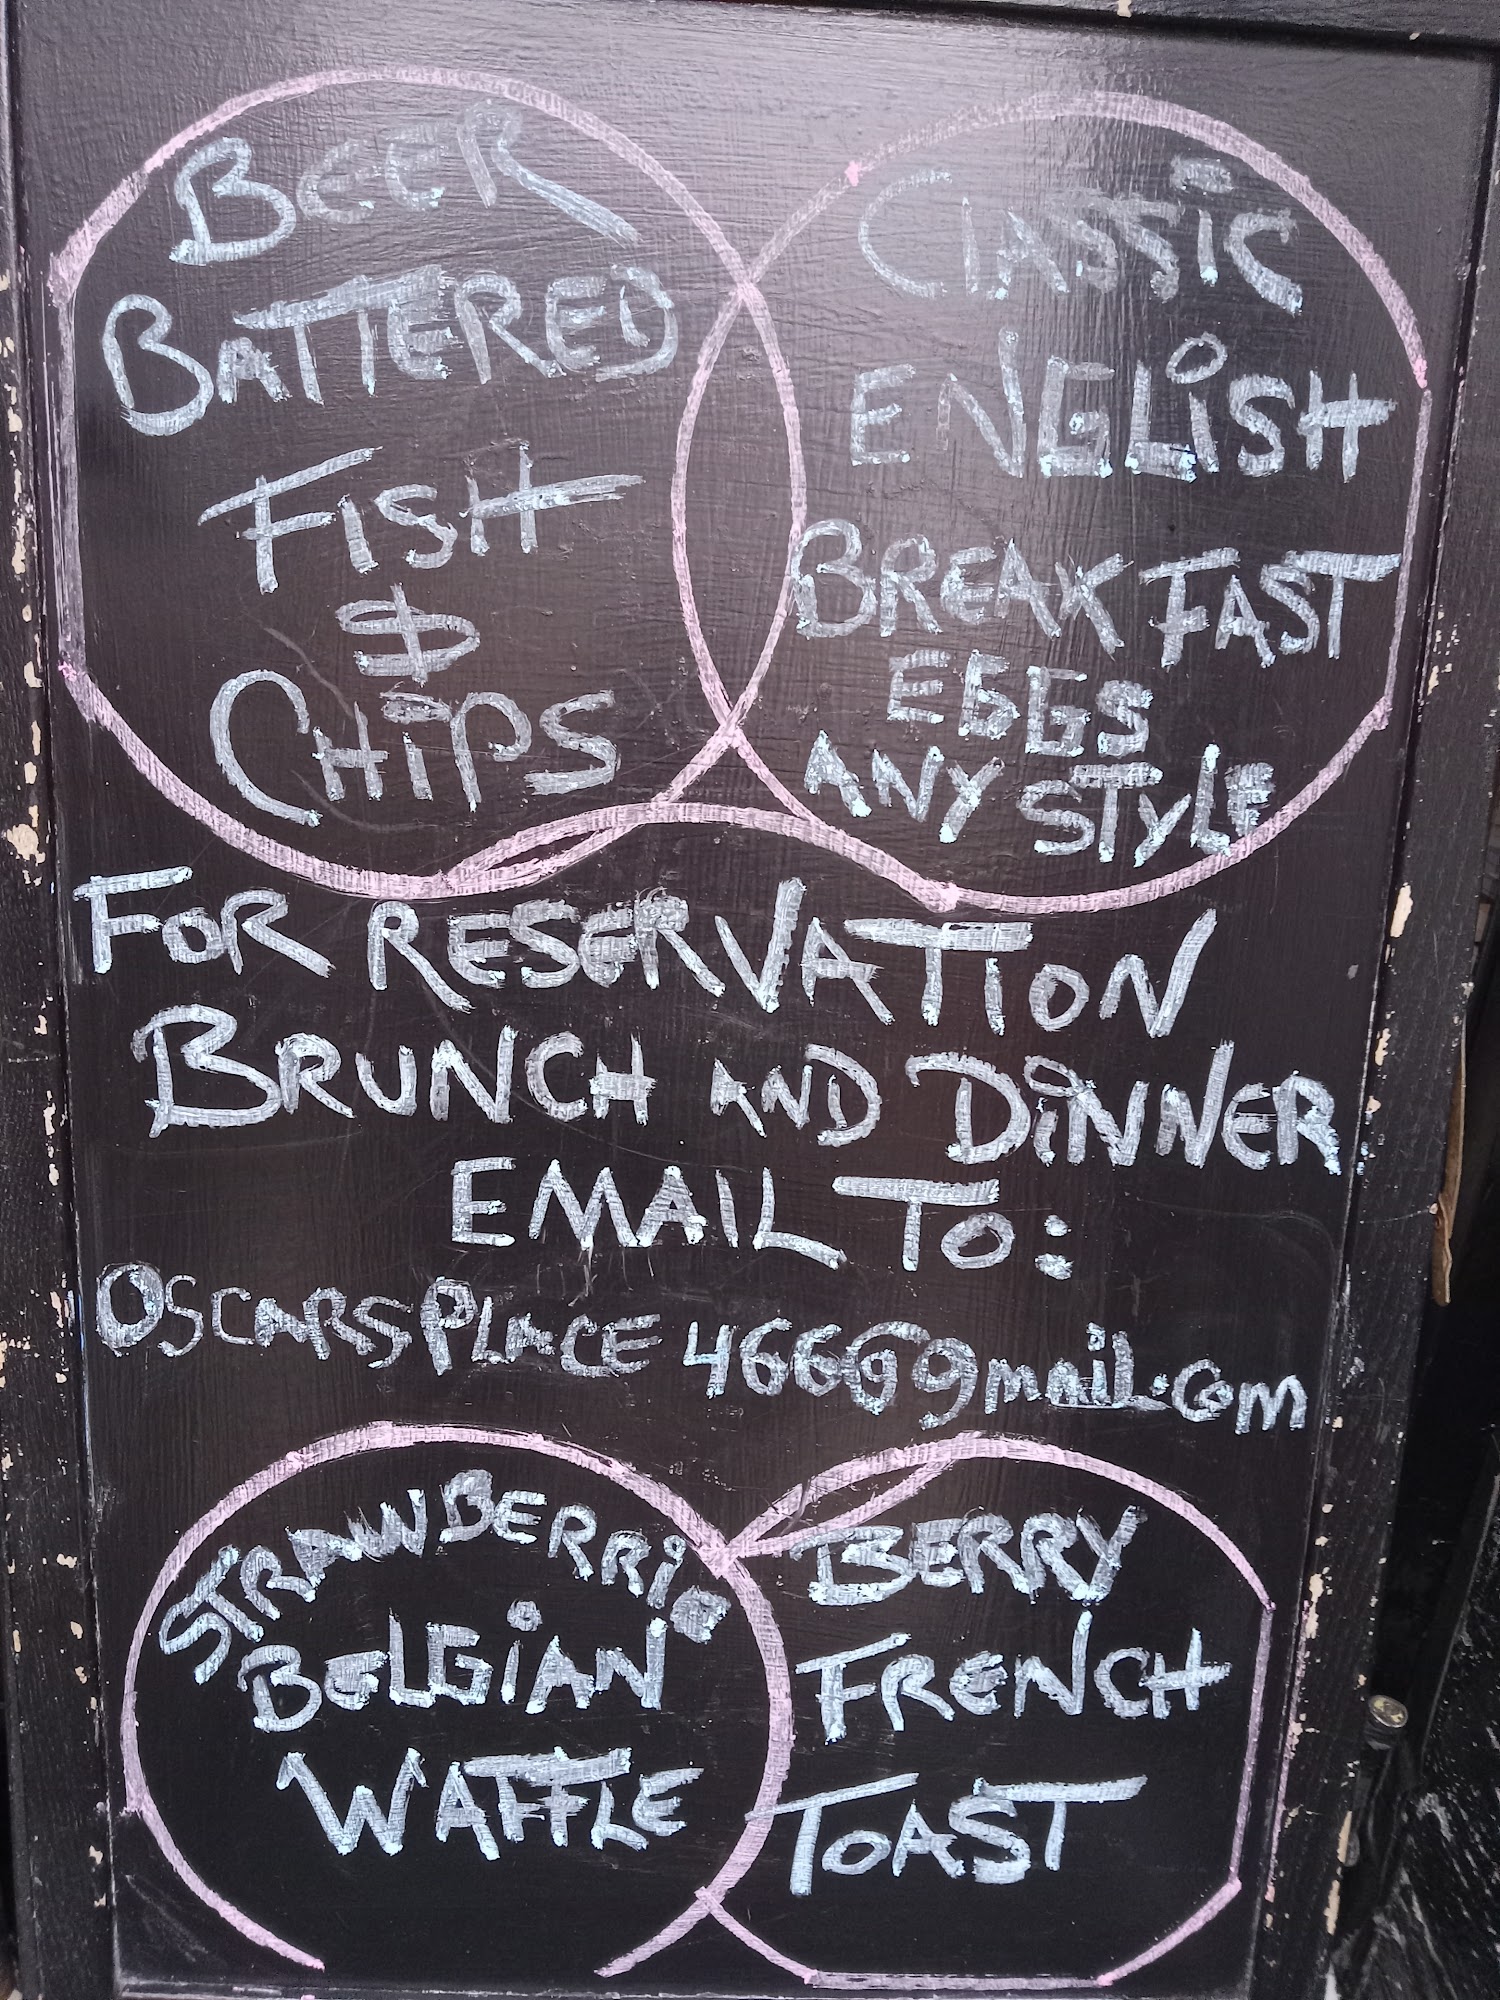 BEER
BATTERED
FISH
$
CHIPS
CLASSIC
ENGLISH
BREAKFAST
EGGS
ANY STYLE
FOR RESERVATION
BRUNCH AND DINNER
EMAIL TO:
OSCARSPLACE 4666@gmail.com
STRAWBERRIE
BELGIAN
WAFFLE
BERRY
FRENCH
TOAST